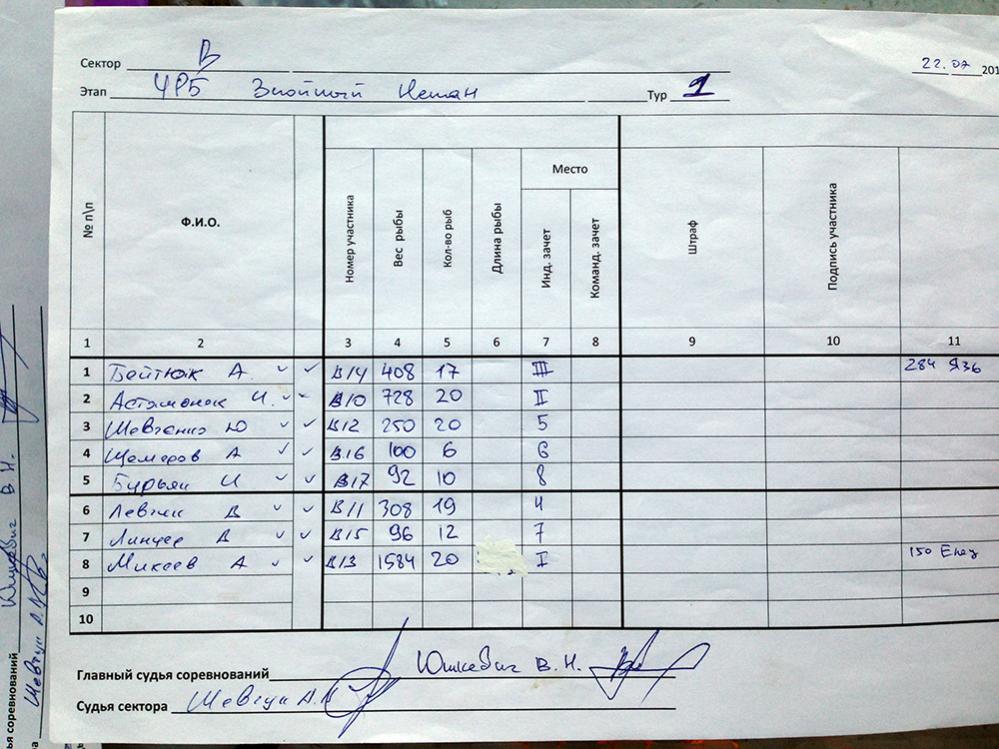 Сектор В
22.07 201
Этап ЧРБ Знойный Неман Тур 1
№ п\п Ф.И.О. Номер участника Вес рыбы Кол-во рыб Длина рыбы Место Инд. зачет Команд. зачет Штраф Подпись участника
1 2 3 4 5 6 7 8 9 10 11
1 А. В14 408 17 III 284 Язь
2 И. В10 728 20 II
3 Шевченко Ю В12 250 20 5
4 Щемеров А В16 100 6 6
5 Бурьян И В17 92 10 8
6 Левчик В В11 308 19 4
7 В В15 96 12 7
8 Микеев А В13 1584 20 I 150
9
10
Главный судья соревнований Юшкевич В. Н.
Судья сектора Шевчук А.
ья соревнований Юшкевич В. Н.
ра Шевчук А.